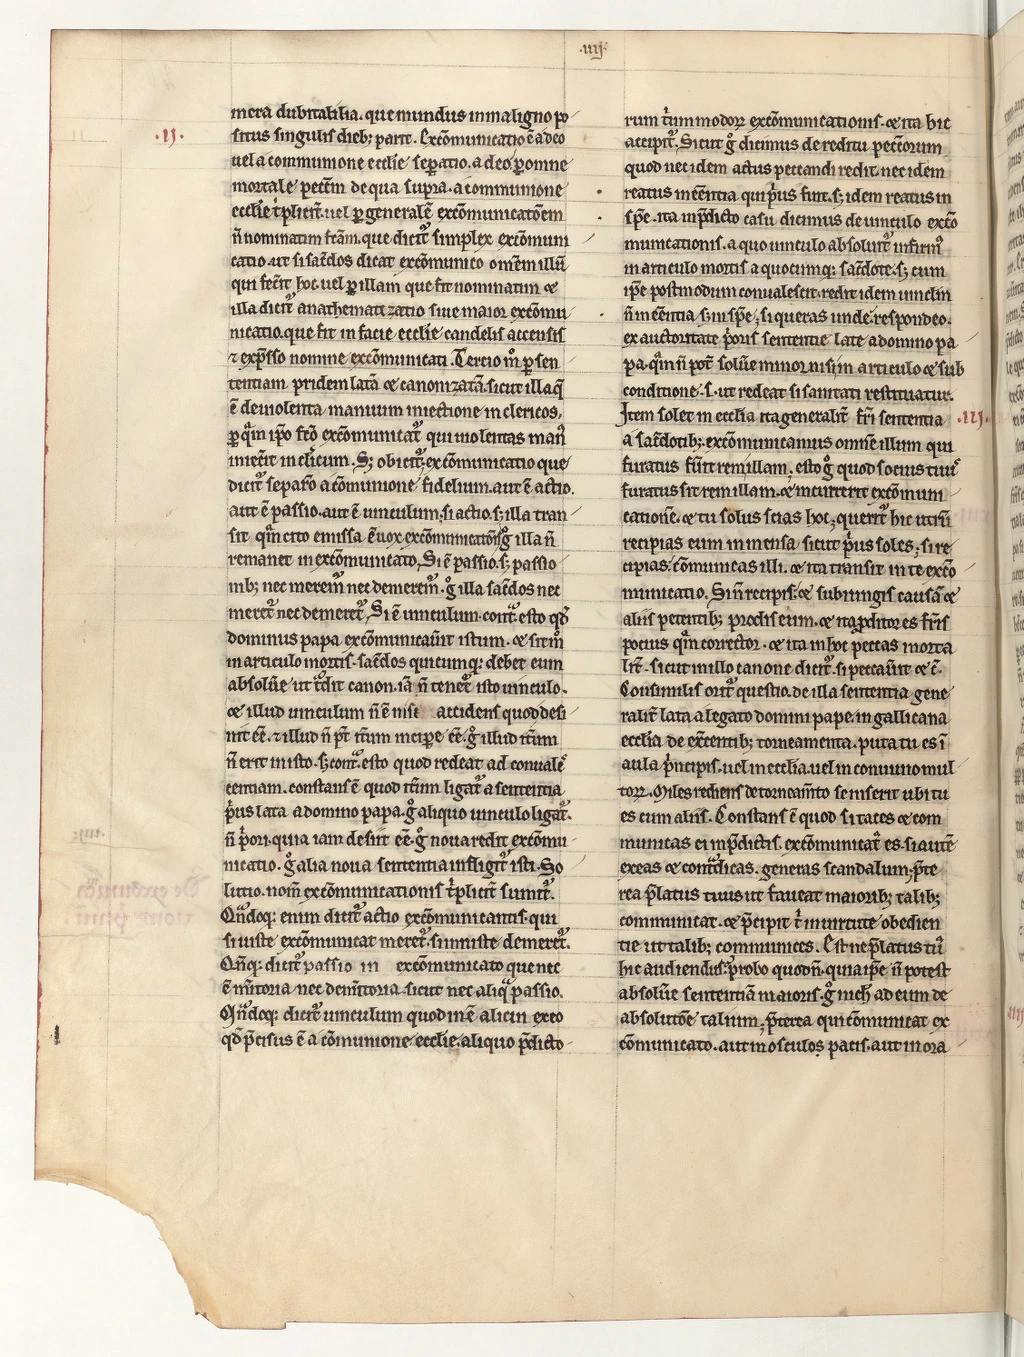 .iiij.
mera dubitabilia. que mundus in maligno po
.ij.
situs singulis dieb; parit. Excōmunicatio ē a deo
uel a communione ecclīe seꝑatio. a deo ꝑ omne
mortale pectm̄ de qua supra. a communione
ecclīe tͥplicit̄. uel ꝑ generalē excōmunicatōem
n̄ nominatim fc̄am. que dicit᷑ simplex excōmuni
catio. ut si sac̄dos dicat excōmunico omēm illū
qui fec̄it hoc. uel ꝑ illam que fit nominatim ⁊
illa dicit᷑ anathematizatio siue maior excōmu
nicatio. que fit in facie ecclīe candelis accensis
⁊ exp̄sso nomine excōmunicati. Tercio m̊ ꝑ sen
tentiam pridem latā ⁊ canonizatā. sicut illa q̄
ē de uiolenta manuum iniectione in clericos.
ꝑ qͣm ip̄o fc̄o excōmunicat᷑ qui uiolentas man̄
iniec̄it in cl̄icum. S; obicit᷑. excōmunicatio que
dicit᷑ separ̄o a cōmunione fidelium. aut ē actio.
aut ē passio. aut ē uinculum. si actio. s; illa tran
sit qͣm cito emissa ē uox excōmunicatōis. gͦ illa n̄
remanet in excōmunicato. Si ē passio. s; passio
nib; nec merem᷑ nec demerem᷑. gͦ illa sac̄dos nec
meret᷑ nec demeret᷑. Si ē uinculum. contͣ. esto qd̄
dominus papa excōmunicau̅it istum. ⁊ sit in
in articulo mortis. sac̄dos quicumq; debet eum
absolūe ut t͛dit canon. iā n̄ tenet᷑ isto uinculo.
⁊ illud uinculum n̄ ē nisi accidens quod desi
nit ēē. ⁊ illud n̄ pt̄ it̄um incipe ēē. gͦ illud it̄um
n̄ erit in isto. s; contͣ. esto quod redeat ad conuale
centiam. constans ē quod it̄um ligat᷑ a sententia
pͥus lata a domino papa. gͦ aliquo uinculo ligat᷑.
n̄ pͥori. quia iam desiit ēē. gͦ noua redit excōmu
nicatio. gͦ alia noua sententia infligit᷑ isti. So
lutio. nom̄ excōmunicationis tͥplicit̄ sumit᷑.
Qn̄doq; enim dicit᷑ actio excōmunicantis. qui
si iuste excōmunicat meret᷑. si iniuste demeret᷑.
Qn̄q; dicit᷑ passio in excōmunicato que nec
ē mītoria nec demītoria. sicut nec aliqͣ passio.
Qn̄doq; dicit᷑ uinculum quod inē alicui ex eo
qd̄ p̄cisus ē a cōmunione ecclīe. aliquo p̄dicto
rum tͥum modoꝝ excōmunicationis. ⁊ ita hic
accipit᷑. Sicut gͦ dicimus de reditu pecc̄torum
quod nec idem actus peccandi redit. nec idem
reatus in ēēntia qui pͥus fuit. s; idem reatus in
sp̄e. ita in p̄dicto casu dicimus de uinculo excō
municationis. a quo uinculo absoluit᷑ infirm᷒
in articulo mortis a quocumq; sac̄dote. s; cum
ip̄e postmodum conualescit. redit idem uinclm̄
n̄ in ēēntia s; in sp̄e. si queras unde. respondeo.
ex auctoritate pͥoris sententie late a domino pa
pa. qͣm n̄ pot̄ solūe minor nisi in articulo ⁊ sub
conditione .s. ut redeat si sanitati restituatur.
Item solet in ecclīa ita generalit̄ fr̄i sententia
.iij.
a sac̄dotib;. excōmunicamus omn̄e illum qui
furatus fūit rem illam. esto gͦ quod socius tuus
furatus sit rem illam. ⁊ incurrerit excōmuni
catione. ⁊ tu solus scias hoc. querit᷑ hic utrū
recipias eum in mensa sicut pͥus soles. si re
cipias. cōmunicas illi. ⁊ ita transit in te excō
municatio. Si n̄ recipis. ⁊ subiungis causā ⁊
aliis petentib; prodis eum. ⁊ ita ꝓditor es fr̄is
pocius qͣm corrector. ⁊ ita in hoc peccas morta
lit̄. sicut in illo canone dicit᷑. si peccau̅it ⁊ c̄.
Consimilis orit᷑ questio. de illa sententia gene
ralit̄ lata a legato domini pape in gallicana
ecclīa de ex̄centib; torneamenta. puta tu es ī
aula pͥncipis. uel in ecclīa. uel in conuiuio mul
toꝝ. Miles rediens de torneam̄to se inserit ubi tu
es cum aliis. Constans ē quod si taces ⁊ com
municas ei in p̄dictis. excōmunicat᷑ es. si autē
exeas ⁊ contͣdicas. generas scandalum. p̄te
rea p̄latus tuus ut faueat maiorib; talib;
communicat. ⁊ p̄cipit tͥ in uirtute obedien
tie ut talib; communices. Est ne p̄latus tū᷒
hic audiendus. probo quod n̄. quia ip̄e n̄ potest
absolūe sententiā maioris. gͦ nich̄ ad eum de
absolutiōe talium. p̄terea qui cōmunicat ex
cōmunicato. aut in osculos pacis. aut in ora